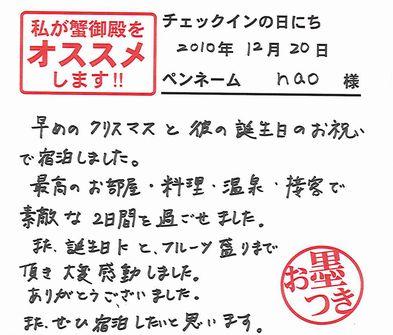 私が蟹御殿を
オススメ
します!!
チェックインの日にち
2010年 12月 20日
ペンネーム nao 様
早めの クリスマス と 彼の誕生日のお祝い
で宿泊しました。
最高の お部屋・料理・温泉・接客で
素敵な 2日間を過ごせました。
また、誕生日に と、フルーツ盛りまで
頂き 大変 感動しました。
ありがとうございました。
また、ぜひ 宿泊したいと思います。
お墨つき